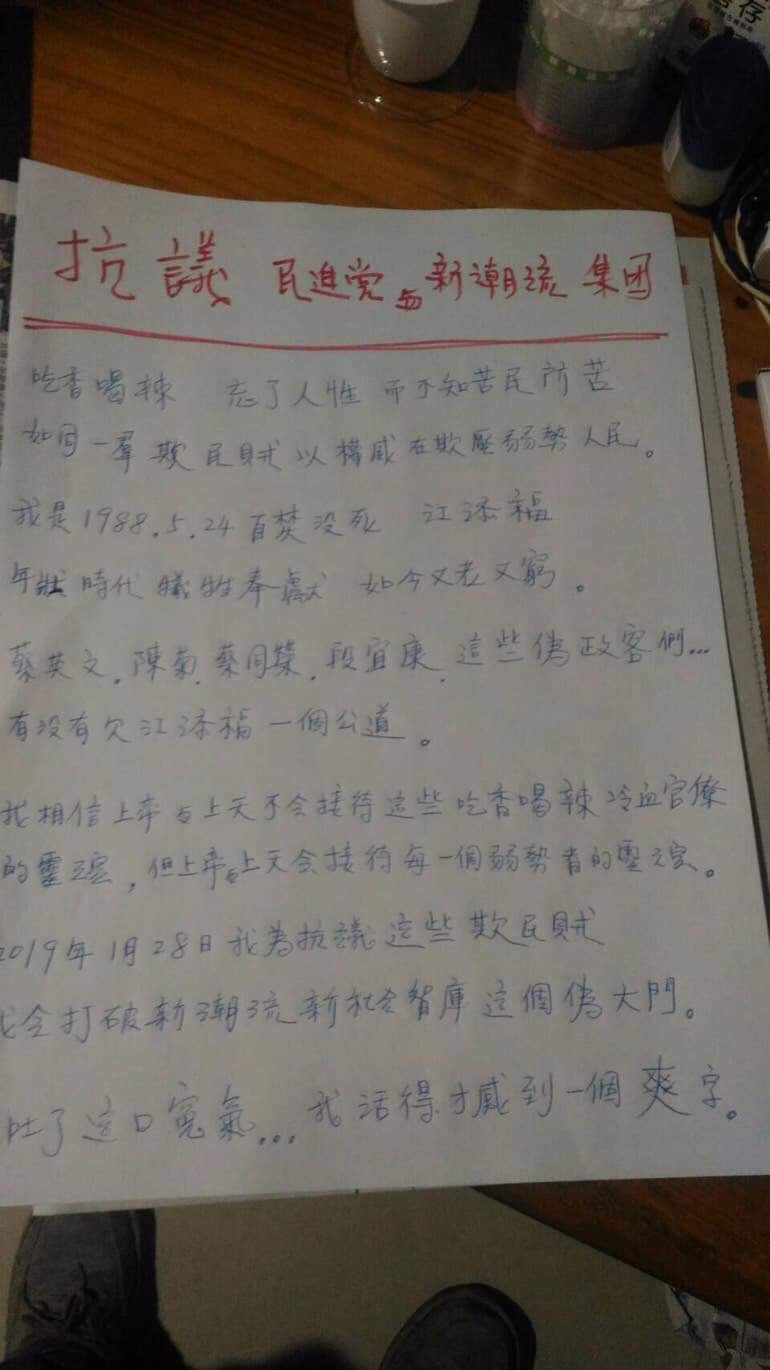 抗議 民進党与新潮流集团
吃香喝辣 忘了人性 而不知苦民所苦
如同一羣欺民賊以權威在欺壓弱勢人民。
我是1988.5.24自焚没死 江添福
年壯時代犧牲奉獻 如今又老又窮。
蔡英文.陳菊.蔡同榮.段宜康.這些偽政客們...
有没有欠江添福一個公道。
我相信上帝与上天不会接待這些吃香喝辣冷血官僚
的靈魂,但上帝与上天会接待每一個弱勢者的靈魂。
2019年1月28日我為抗議這些欺民賊
会打破新潮流新社会智庫這個偽大門。
吐了這口冤氣...我活得才感到一個爽字。
存